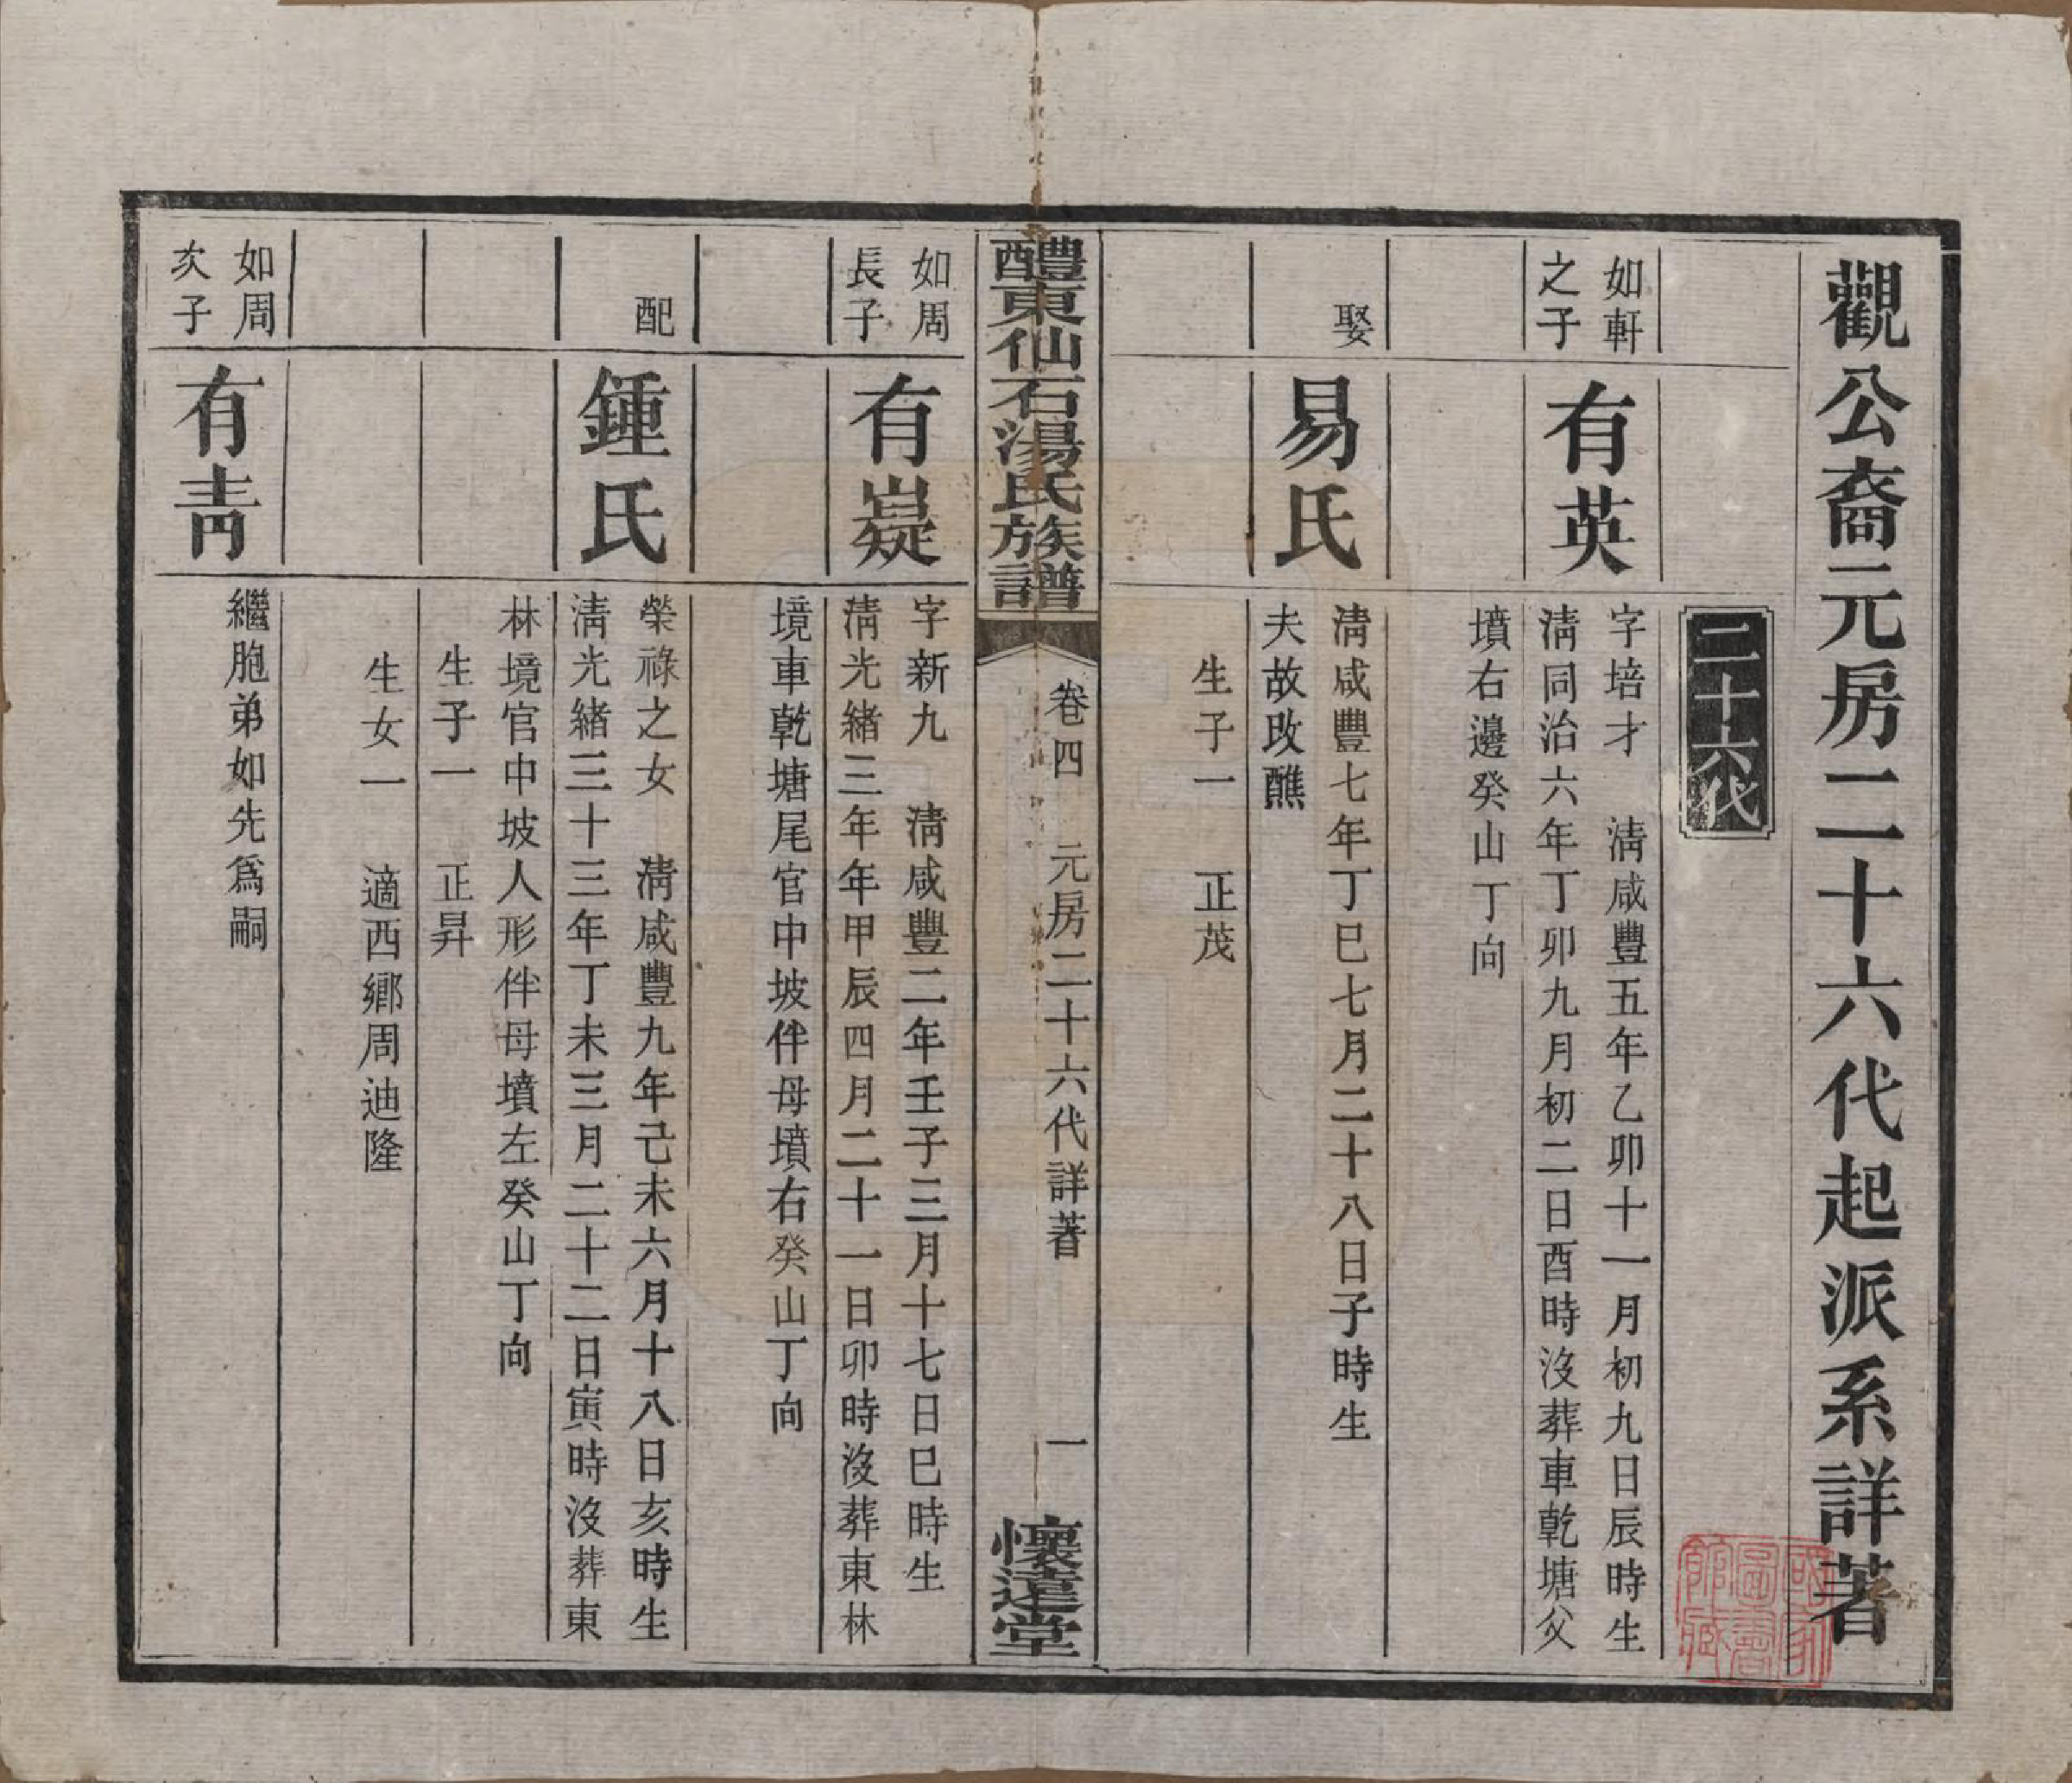 觀公裔元房二十六代起派系詳著
二十六代
如軒
之子
有英
字培才　淸咸豐五年乙卯十一月初九日辰時生
淸同治六年丁卯九月初二日酉時沒葬車乾塘父
墳右邊癸山丁向
娶
易氏
淸咸豐七年丁巳七月二十八日子時生
夫故改醮
生子一　正茂
醴東仙石湯氏族譜
卷四　元房二十六代詳著
一
懷遠堂
如周
長子
有嶷
字新九　淸咸豐二年壬子三月十七日巳時生
淸光緖三年年甲辰四月二十一日卯時沒葬東林
境車乾塘尾官中坡伴母墳右癸山丁向
配
鍾氏
榮祿之女　淸咸豐九年己未六月十八日亥時生
淸光緖三十三年丁未三月二十二日寅時沒葬東
林境官中坡人形伴母墳左癸山丁向
生子一　正昇
生女一　適西鄉周迪隆
如周
次子
有靑
繼胞弟如先爲嗣
國家
圖書
館藏